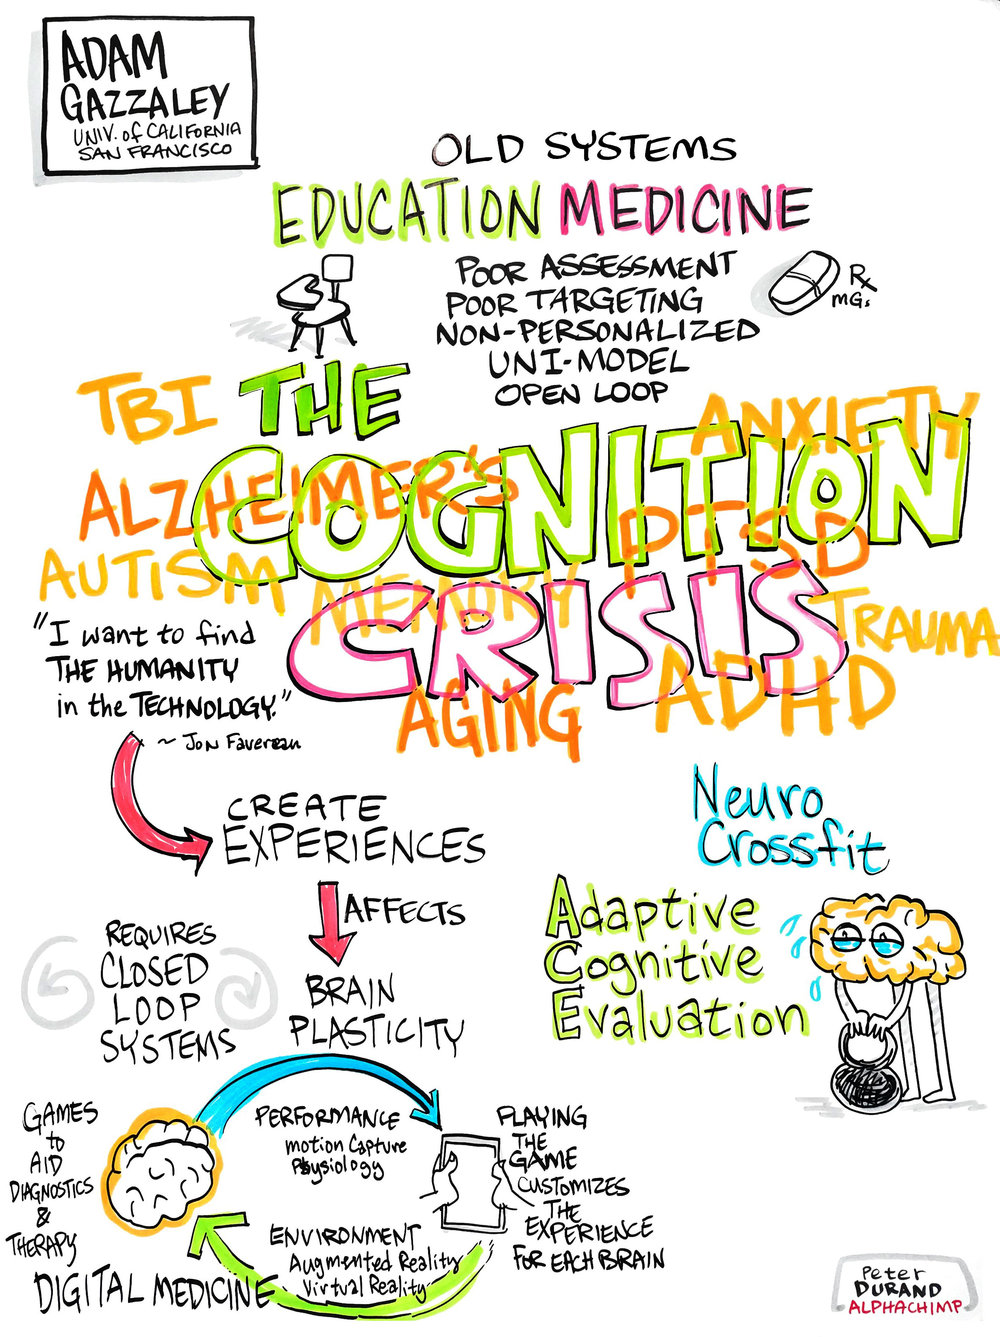 ADAM
GAZZALEY
UNIV. of CALIFORNIA
SAN FRANCISCO
OLD SYSTEMS
EDUCATION MEDICINE
POOR ASSESSMENT
POOR TARGETING
NON-PERSONALIZED
UNI-MODEL
OPEN LOOP
Rx
MGs
TBI
THE
COGNITION
CRISIS
ANXIETY
ALZHEIMER'S
PTSD
AUTISM
MEMORY
TRAUMA
ADHD
AGING
"I want to find
THE HUMANITY
in the TECHNOLOGY."
~ Jon Favereau
CREATE
EXPERIENCES
AFFECTS
BRAIN
PLASTICITY
REQUIRES
CLOSED
LOOP
SYSTEMS
Neuro
Crossfit
Adaptive
Cognitive
Evaluation
GAMES
to
AID
DIAGNOSTICS
&
THERAPY
DIGITAL MEDICINE
PERFORMANCE
motion Capture
Physiology
ENVIRONMENT
Augmented Reality
Virtual Reality
PLAYING
THE
GAME
CUSTOMIZES
THE
EXPERIENCE
FOR EACH BRAIN
Peter
DURAND
ALPHACHIMP